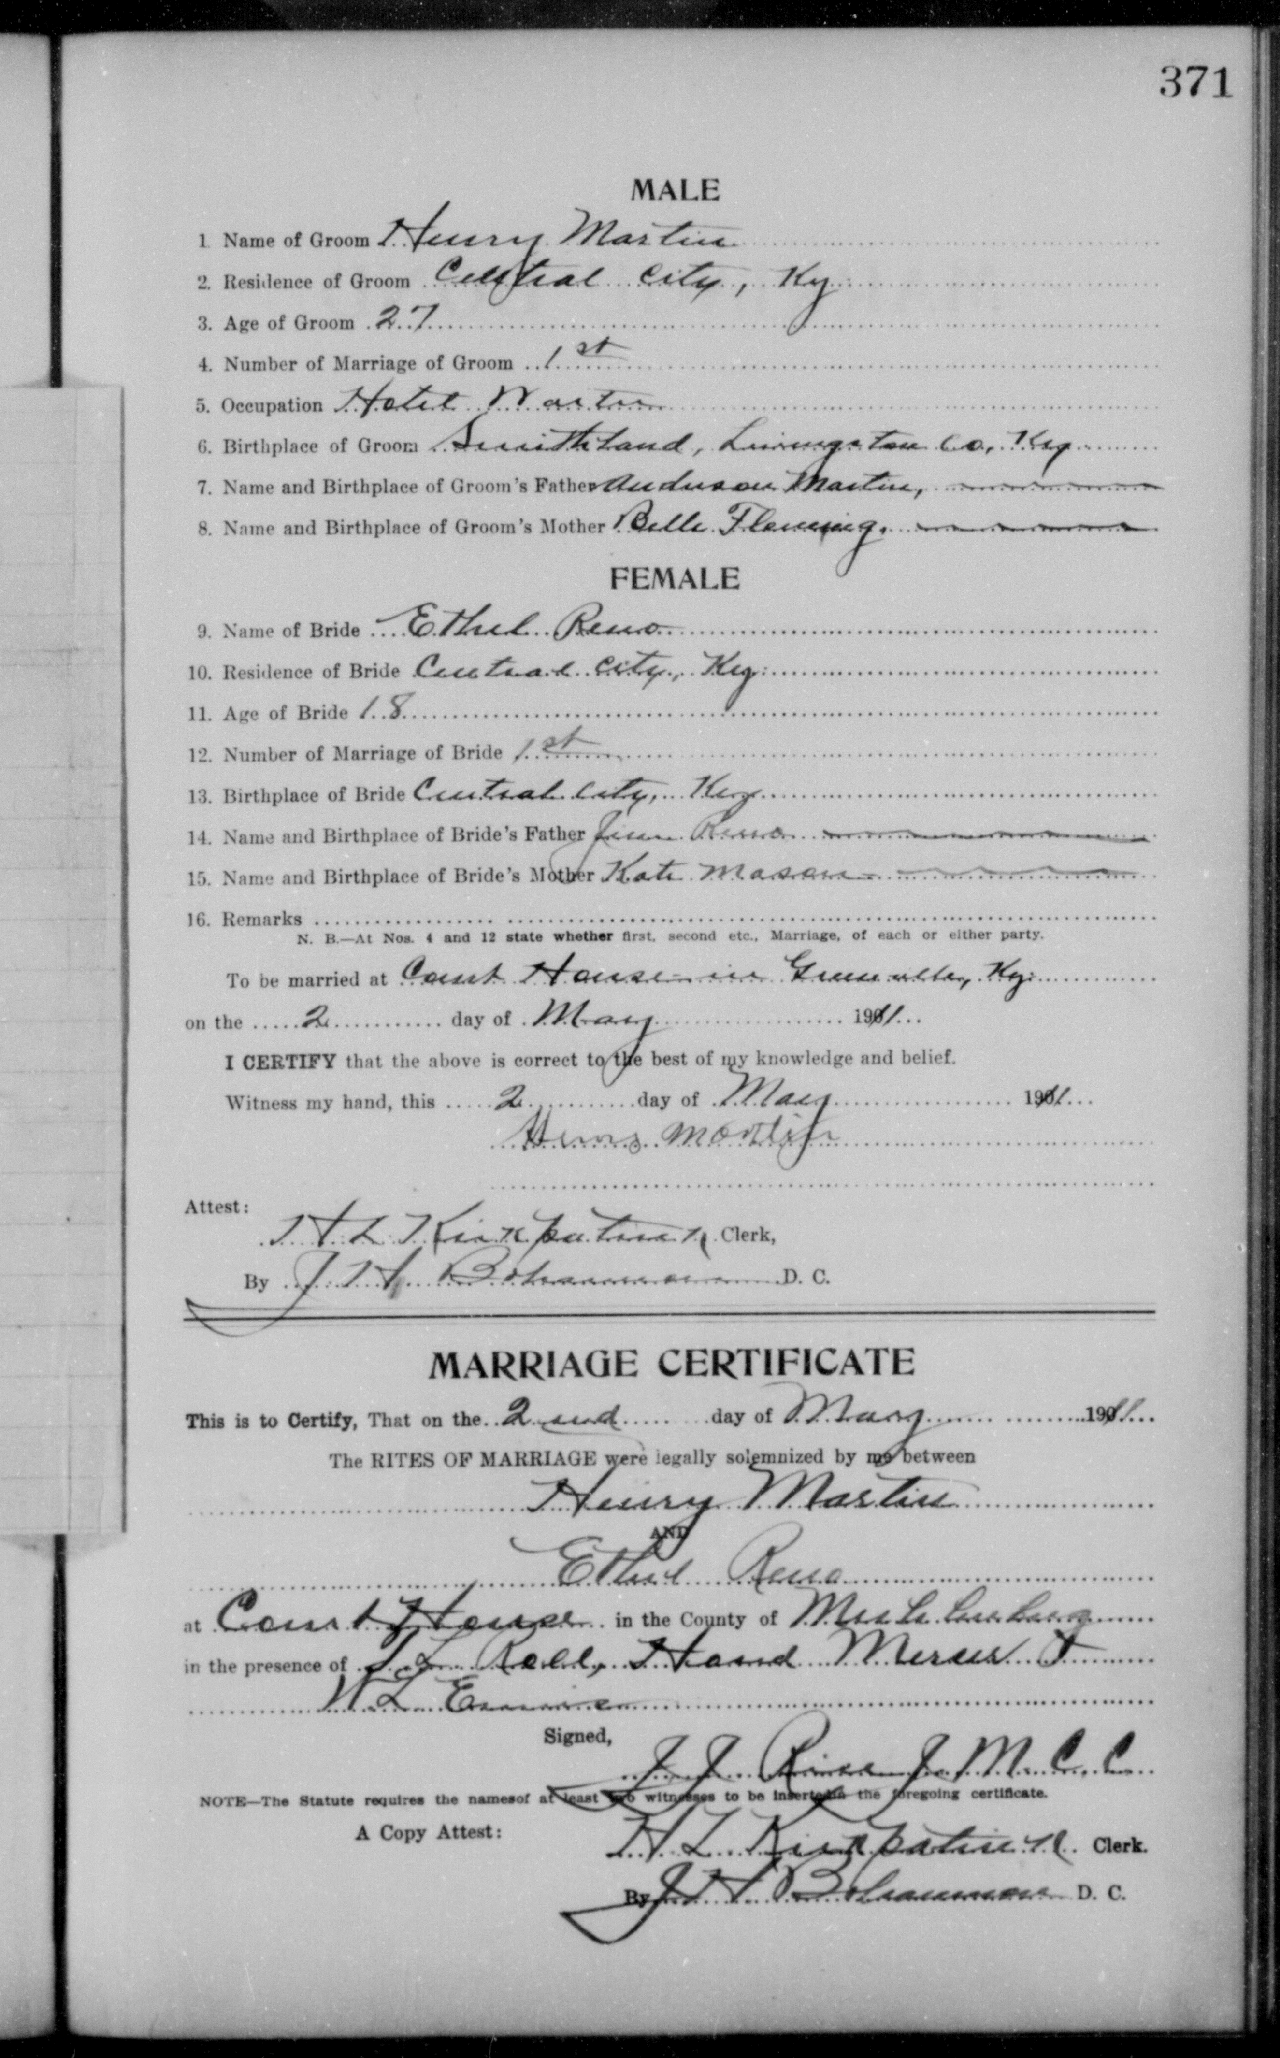 371
MALE
1. Name of Groom Henry Martin
2. Residence of Groom Central City, Ky.
3. Age of Groom 27
4. Number of Marriage of Groom 1st
5. Occupation Hotel Waiter
6. Birthplace of Groom Smithland, Livingston Co, Ky
7. Name and Birthplace of Groom's Father Anderson Martin,
8. Name and Birthplace of Groom's Mother Belle Fleming.
FEMALE
9. Name of Bride Ethel Reno
10. Residence of Bride Central City, Ky.
11. Age of Bride 18
12. Number of Marriage of Bride 1st
13. Birthplace of Bride Central City, Ky
14. Name and Birthplace of Bride's Father Jim Reno
15. Name and Birthplace of Bride's Mother Kate Mason
16. Remarks
N. B.—At Nos. 4 and 12 state whether first, second etc., Marriage, of each or either party.
To be married at Court House in Greenville, Ky.
on the 2 day of May 1911
I CERTIFY that the above is correct to the best of my knowledge and belief.
Witness my hand, this 2 day of May 1911
Henry Martin
Attest:
H L Kirkpatrick Clerk,
By J H Bohannon D. C.
MARRIAGE CERTIFICATE
This is to Certify, That on the 2nd day of May 1911
The RITES OF MARRIAGE were legally solemnized by me between
Henry Martin
AND
Ethel Reno
at Court House in the County of Muhlenberg
in the presence of Roll, Mercer &
W L
Signed,
J J Rice J. M. C. C
NOTE—The Statute requires the namesof at least two witnesses to be insertedin the foregoing certificate.
A Copy Attest:
H L Kirkpatrick Clerk.
By J H Bohannon D. C.